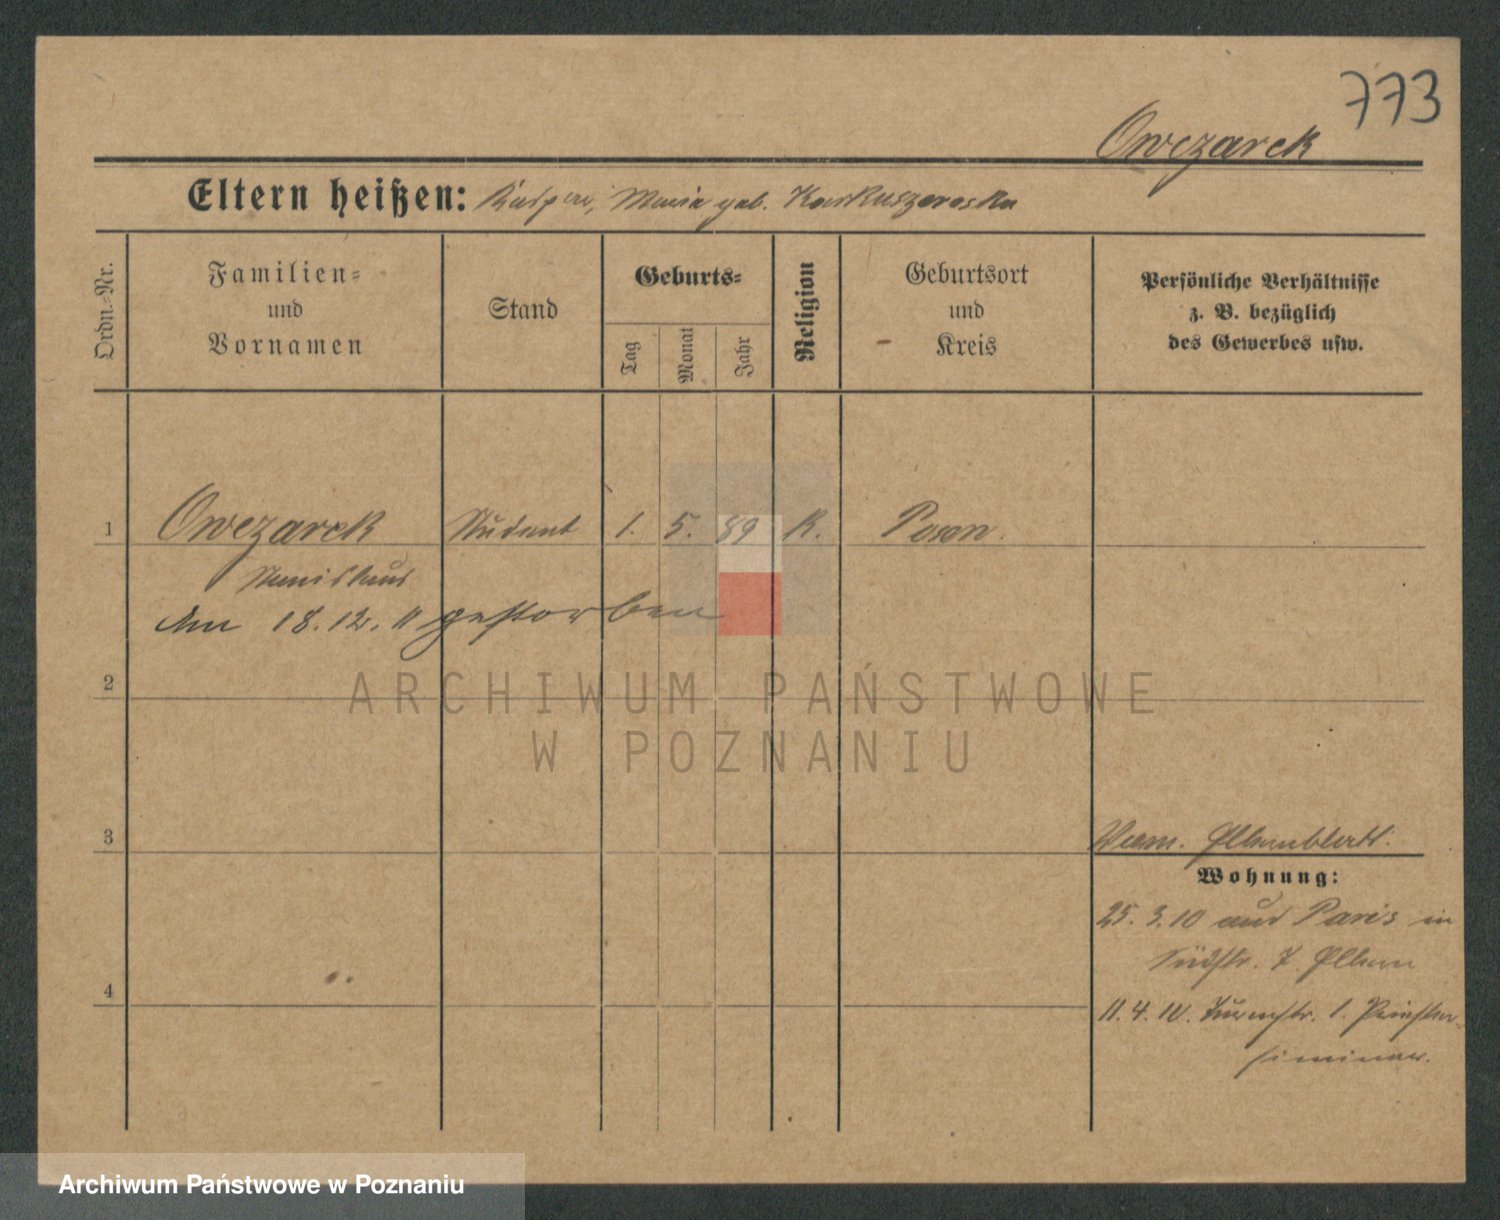 773
Owczarek
Eltern heißen: Kasper, Maria geb.
Ordn.-Nr.
Familien-
und
Vornamen
Stand
Geburts-
Tag
Monat
Jahr
Religion
Geburtsort
und
Kreis
Persönliche Verhältnisse
z. B. bezüglich
des Gewerbes usw.
1 Owczarek Student 1. 5. 89 K. Posen.
Stanislaus
Am 18.12.11 gestorben
2
ARCHIWUM PAŃSTWOWE
W POZNANIU
3
Wohnung:
25.3.10 aus Paris in
Südstr. 7 Eltern
4
11.4.10. Turmstr. 1. Priester-
seminar.
Archiwum Państwowe w Poznaniu